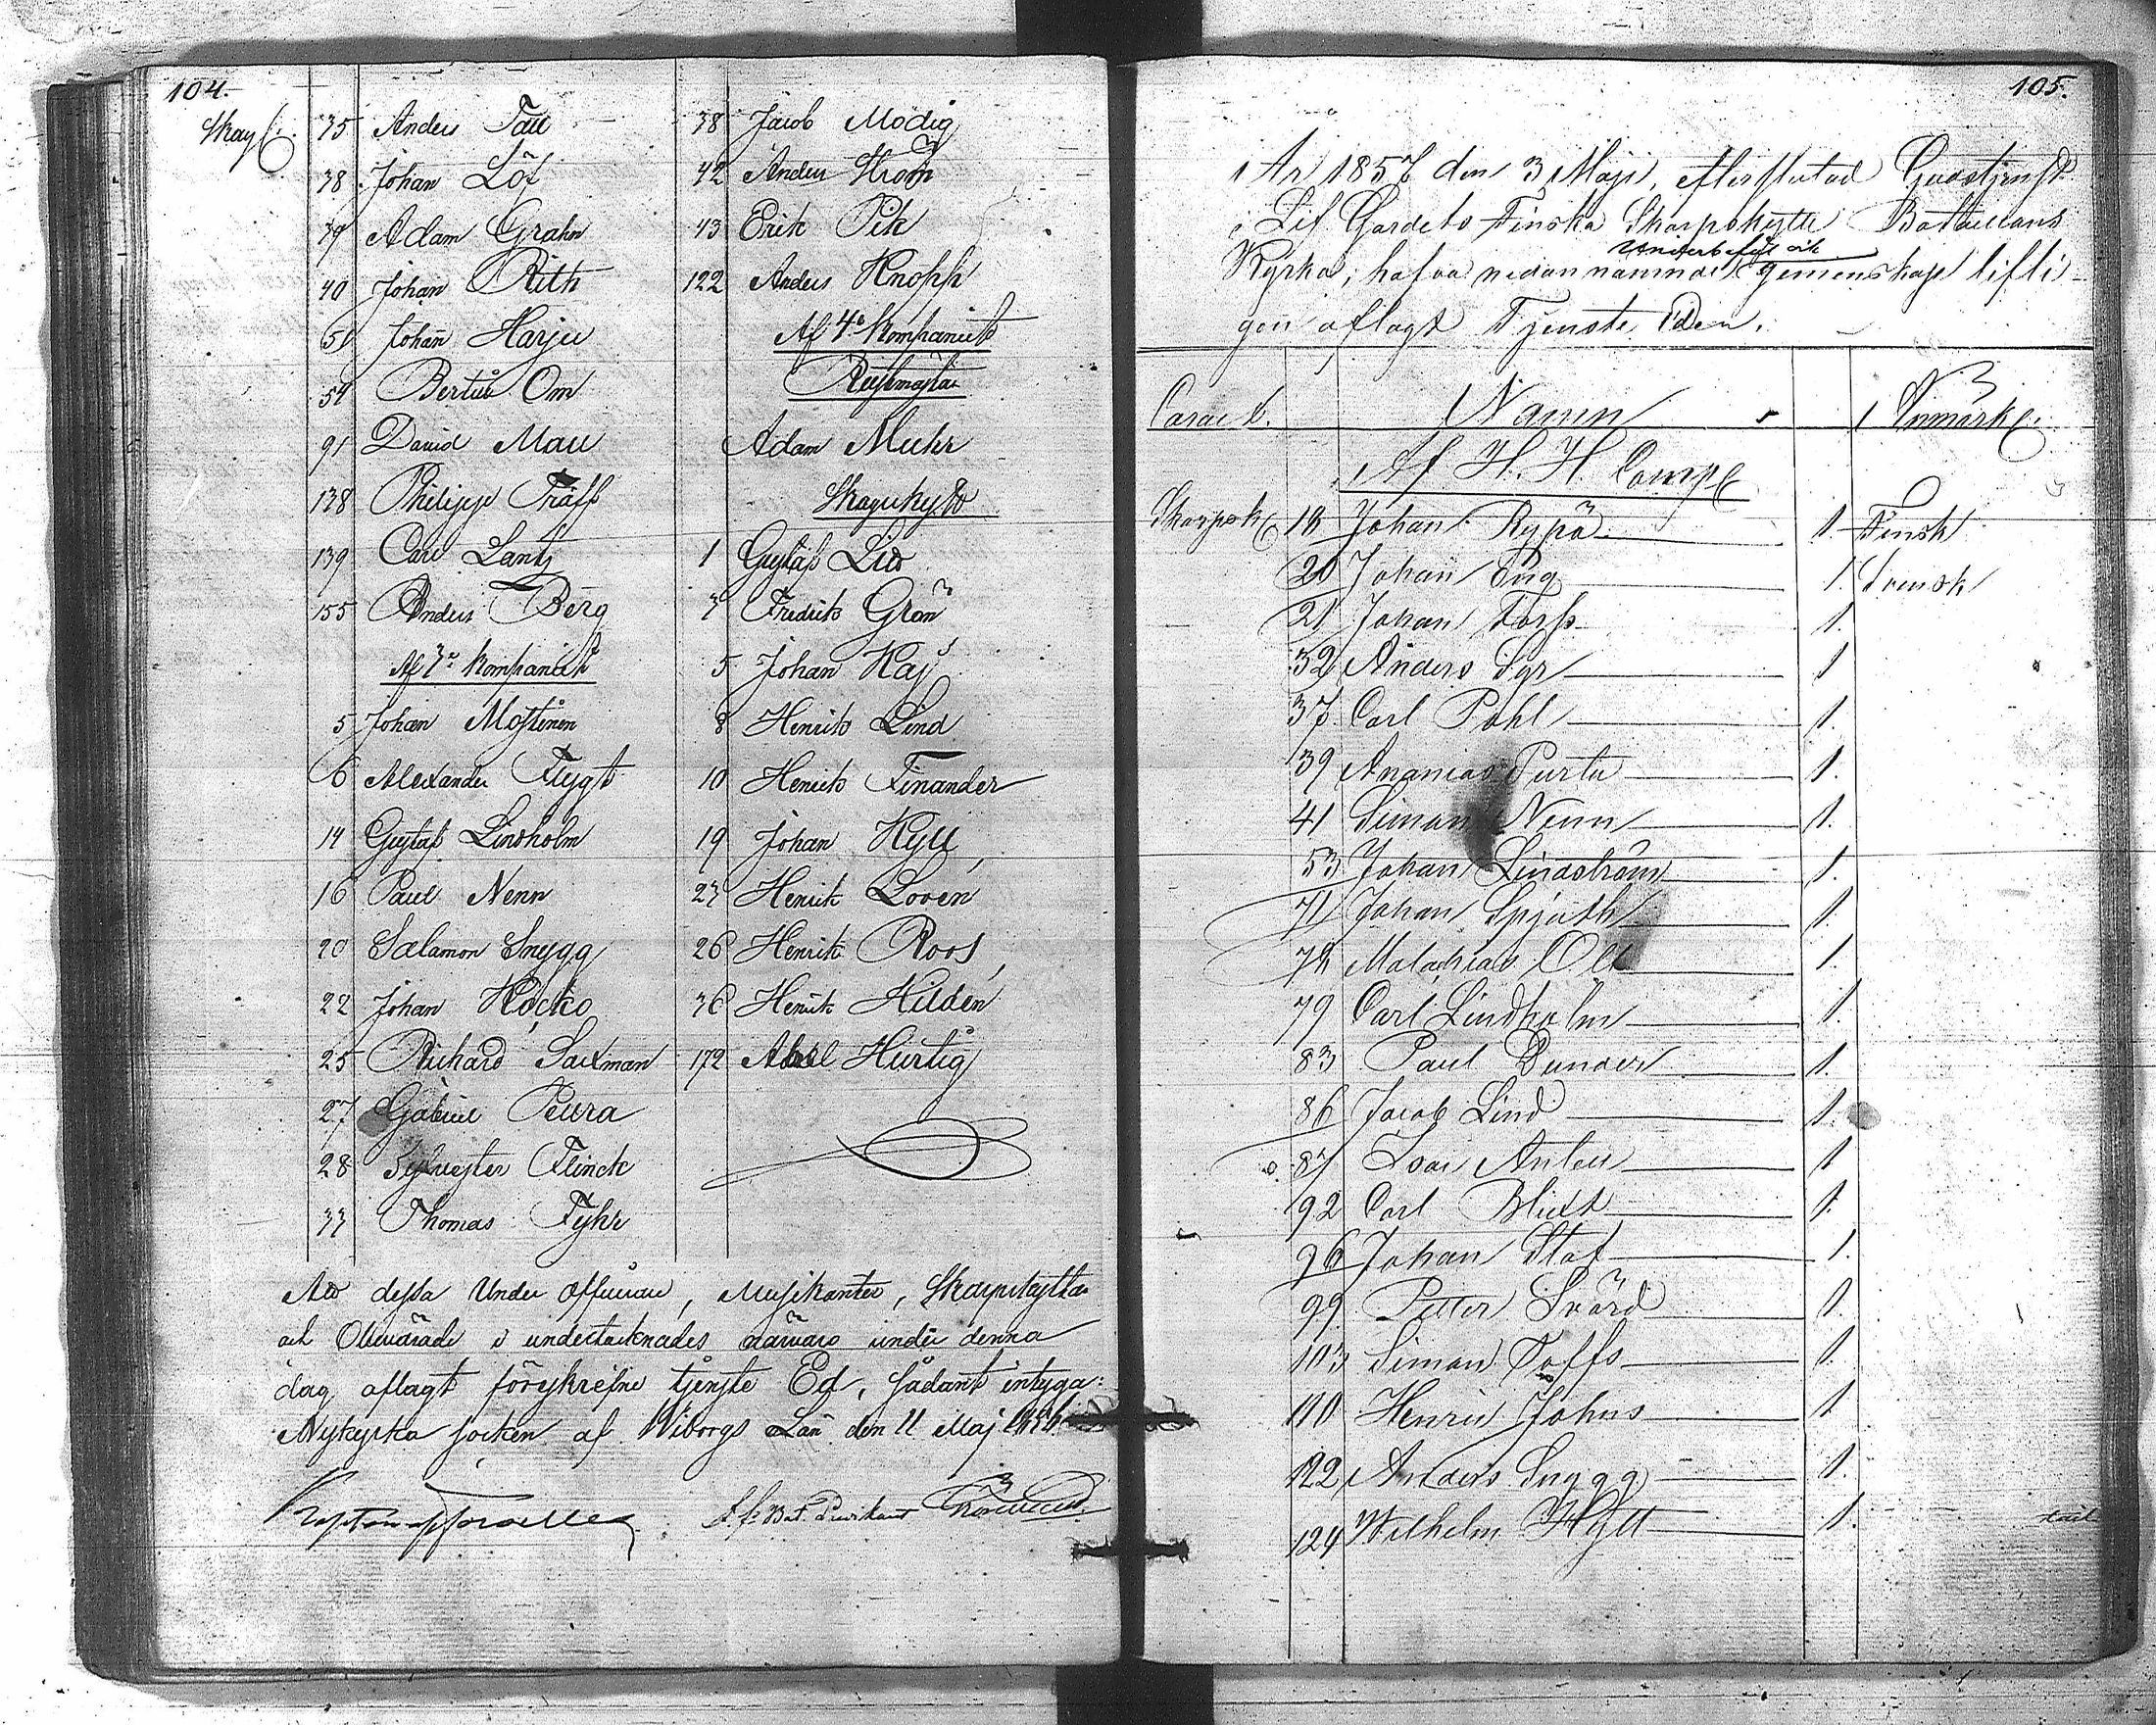 104.
35 Anders Tall
38 Johan Löf
39 Adam Grahn
40 Johan Rith
51 Johan Harju
54 Bertil Om
91 David Mall
138 Philipp Träff
139 Carl Lantz
155 Anders Berg
Af 3e Kompaniet
5 Johan Mostinen
6 Alexander Flygt
14 Gustaf Lindholm
16 Paul Nenn
20 Salamon Snygg
22 Johan Kocko
25 Richard Saxman
27 Gabriel Peura
28 Sylvester Flinck
33 Thomas Fyhr
38 Jacob Modig
42 Anders Ström
43 Erik Pik
122 Anders Knopp
Af 4e Kompaniet
Rustmästar
Adam Muhr
Skarpskytt
1 Gustaf Lid
3 Fredrik Grön
5 Johan Kaj
8 Henrik Lind
10 Henrik Finander
19 Johan Kyll
23 Henrik Lovén
26 Henrik Roos
36 Henrik Hildén
172 Abel Hurtig
Att dessa Under officerare, Musikanter, Skarpskyttar
och i undertecknades närvaro under denna
dag aflagt föreskrefne tjenste Ed, sådant intyga:
Nykyrka socken af Wiborgs Län den 11 Maj
105.
År 1857 den 3 Maji, efter slutad Gudstjenst
i Lif Gardets Finska Skarpskytte Bataillons
Underbefäl och
Kyrka, hafva nedannämnde gemenskap lifli-
gen aflagt Tjenste Eden.
Namn Anmärk
Af H. H. Comp
Skarpsk 18 Johan Rypä 1. Finsk
20 Johan Eng 1. Svensk
21 Johan Fors 1.
32 Anders Syr 1
37 Carl Pohl 1.
39 Ananias Purtu 1.
41 Simon Nenn 1.
53 Johan Lindström 1.
71 Johan Spjuth 1.
78 Malachias 1.
79 Carl Lindholm 1.
83 Paul Dunder 1.
86 Jacob Lind 1.
87 Isac 1
92 Carl Blixt 1.
96 Johan Staf 1.
99 Petter Svärd 1.
103 Simon Toffs 1.
110 Henric Johns 1
122 Anders Snygg 1.
124 Wilhelm Hyll 1.